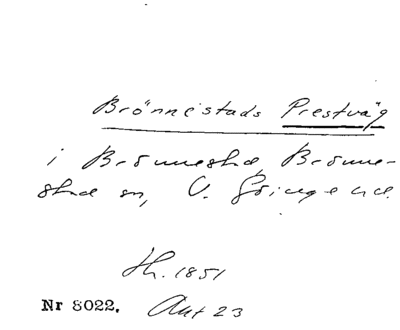 Brönnestads Prestväg
i Brönnestad, Brönne-
stad sn, V. Göinge hd.
Hh. 1851
Nr 8022. Akt 23